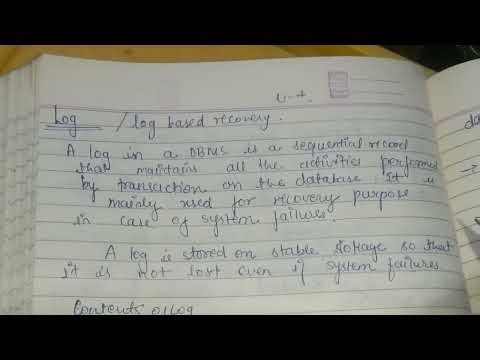 U-4.
Log / log based recovery.
A log in a DBMS is a sequential record
that maintains all the activities performed
by transaction on the database. It is
mainly used for recovery purpose
in case of system failures.
A log is stored on stable storage so that
it is not lost even if system failures
Contents of log
da